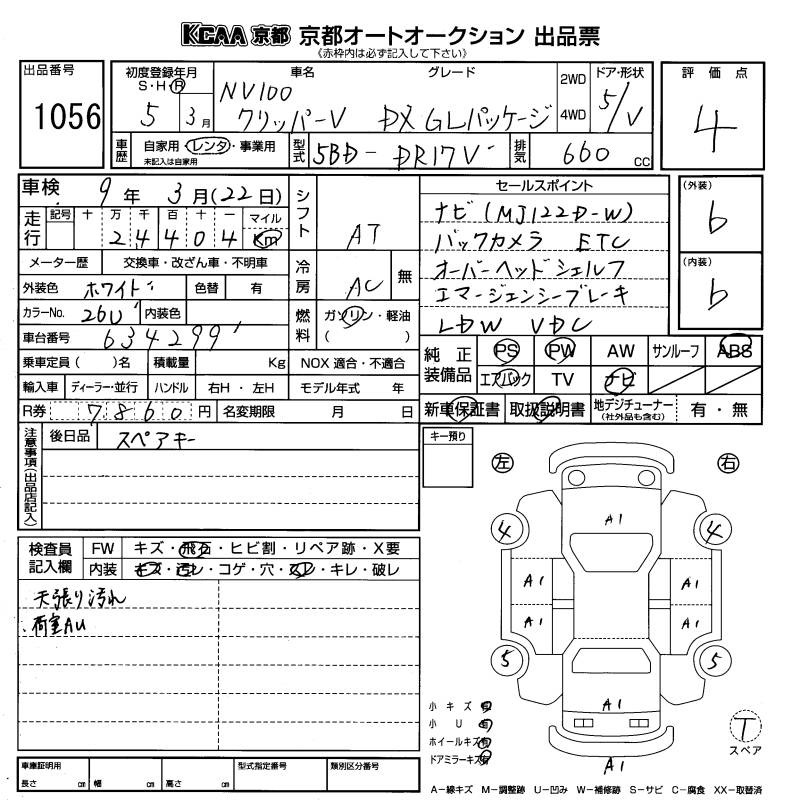 KCAA 京都 京都オートオークション 出品票
(赤枠内は必ず記入して下さい)
出品番号 1056
初度登録年月 S・H・R 5 3月
車名 グレード
NV100
クリッパーV DX GLパッケージ
2WD 4WD
ドア・形状 5/V
評価点 4
車歴 自家用・レンタ・事業用
未記入は自家用
型式 5BD-DR17V
排気 660 CC
車検 9年 3月(22日)
シフト AT
セールスポイント
ナビ(MJ122D-W)
バックカメラ ETC
オーバーヘッドシェルフ
エマージェンシーブレーキ
LDW VDC
(外装) b
(内装) b
走行 記号 十 万 千 百 十 一 マイル
2 4 4 0 4 Km
メーター歴 交換車・改ざん車・不明車
冷房 AC 無
外装色 ホワイト 色替 有
カラーNo. 26U 内装色
燃料 ガソリン・軽油
( )
車台番号 634299
乗車定員( )名 積載量 Kg NOX 適合・不適合
輸入車 ディーラー・並行 ハンドル 右H・左H モデル年式 年
R券 7860円 名変期限 月 日
純正装備品 PS PW AW サンルーフ ABS
エアバック TV ナビ
新車保証書 取扱説明書 地デジチューナー (社外品も含む) 有・無
注意事項(出品店記入)
後日品 スペアキー
キー預り
左 右
検査員記入欄
FW キズ・飛石・ヒビ割・リペア跡・X要
内装 キズ・汚レ・コゲ・穴・スレ・キレ・破レ
天張り汚れ
荷室AU
A1
4 4
A1 A1
A1 A1
5 5
A1
A1
小キズ 有
小U 有
ホイールキズ 有
ドアミラーキズ 有
T
スペア
車庫証明用
長さ cm 幅 cm 高さ cm
型式指定番号 類別区分番号
A−線キズ M−調整跡 U−凹み W−補修跡 S−サビ C−腐食 XX−取替済